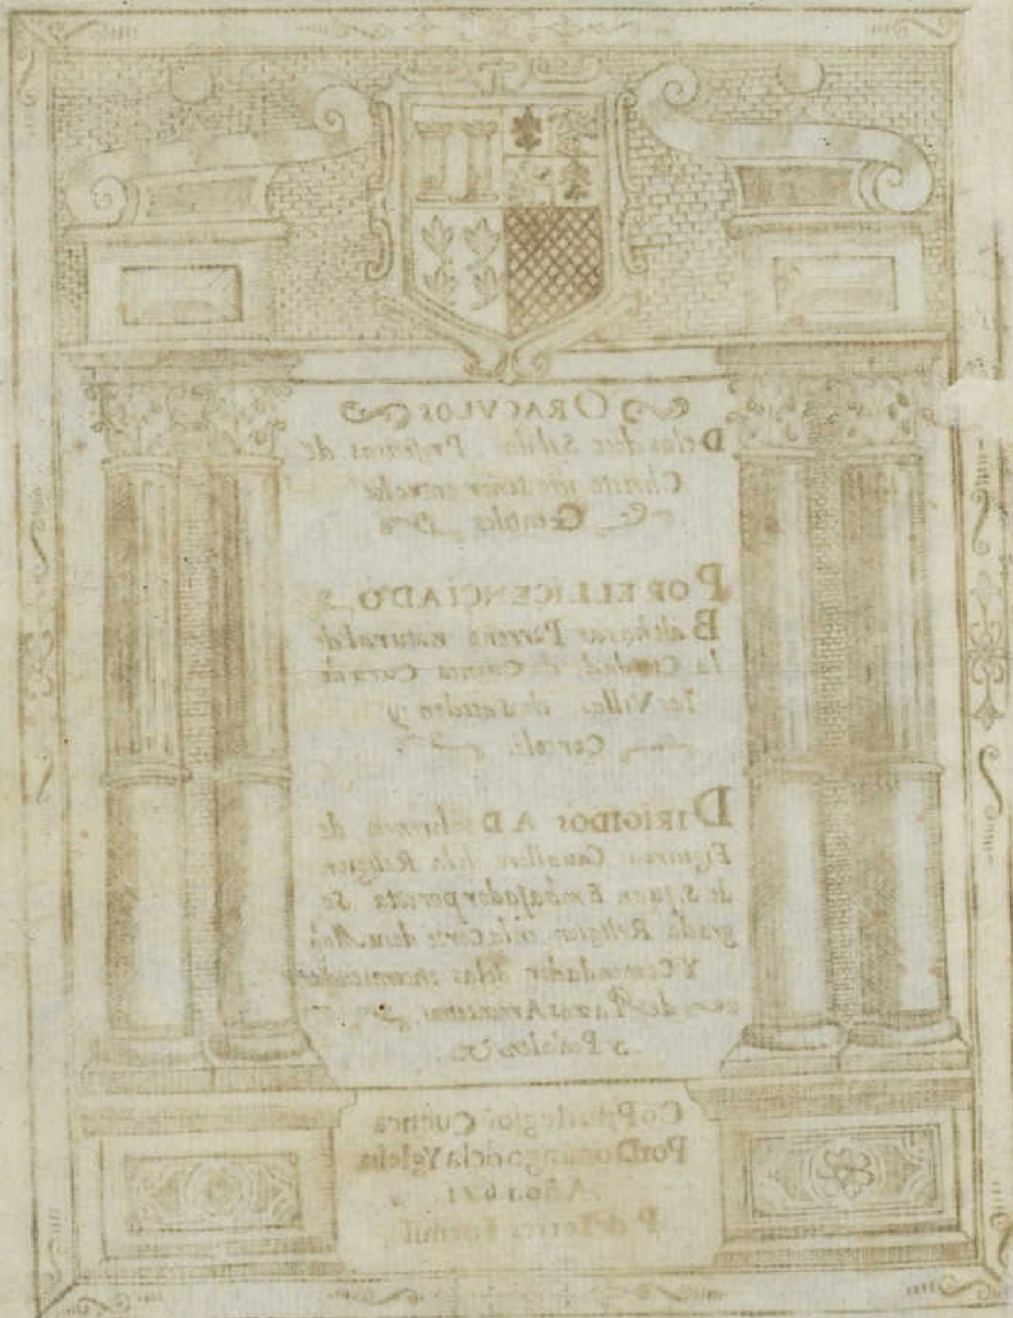 ORACVLOS
Delas doze Sibilas Profetisas de
Christo ñro señor entre los
Gentiles
POR EL LICENCIADO
Baltasar Porreño natural de
la Ciudad de Cuenca Cura de
las Villas de Sacedon y
Corcoles
DIRIGIDOS A D de
Figueroa Cauallero dela Religion
de S. Juan Embajador por esta Sa
grada Religion enla Corte de su Mag
Y Comendador delas encomiendas
de
y Peñalen
Cō Priuilegio ē Cuenca
Por Domingo de la Yglesia
Año. 1621
P. de